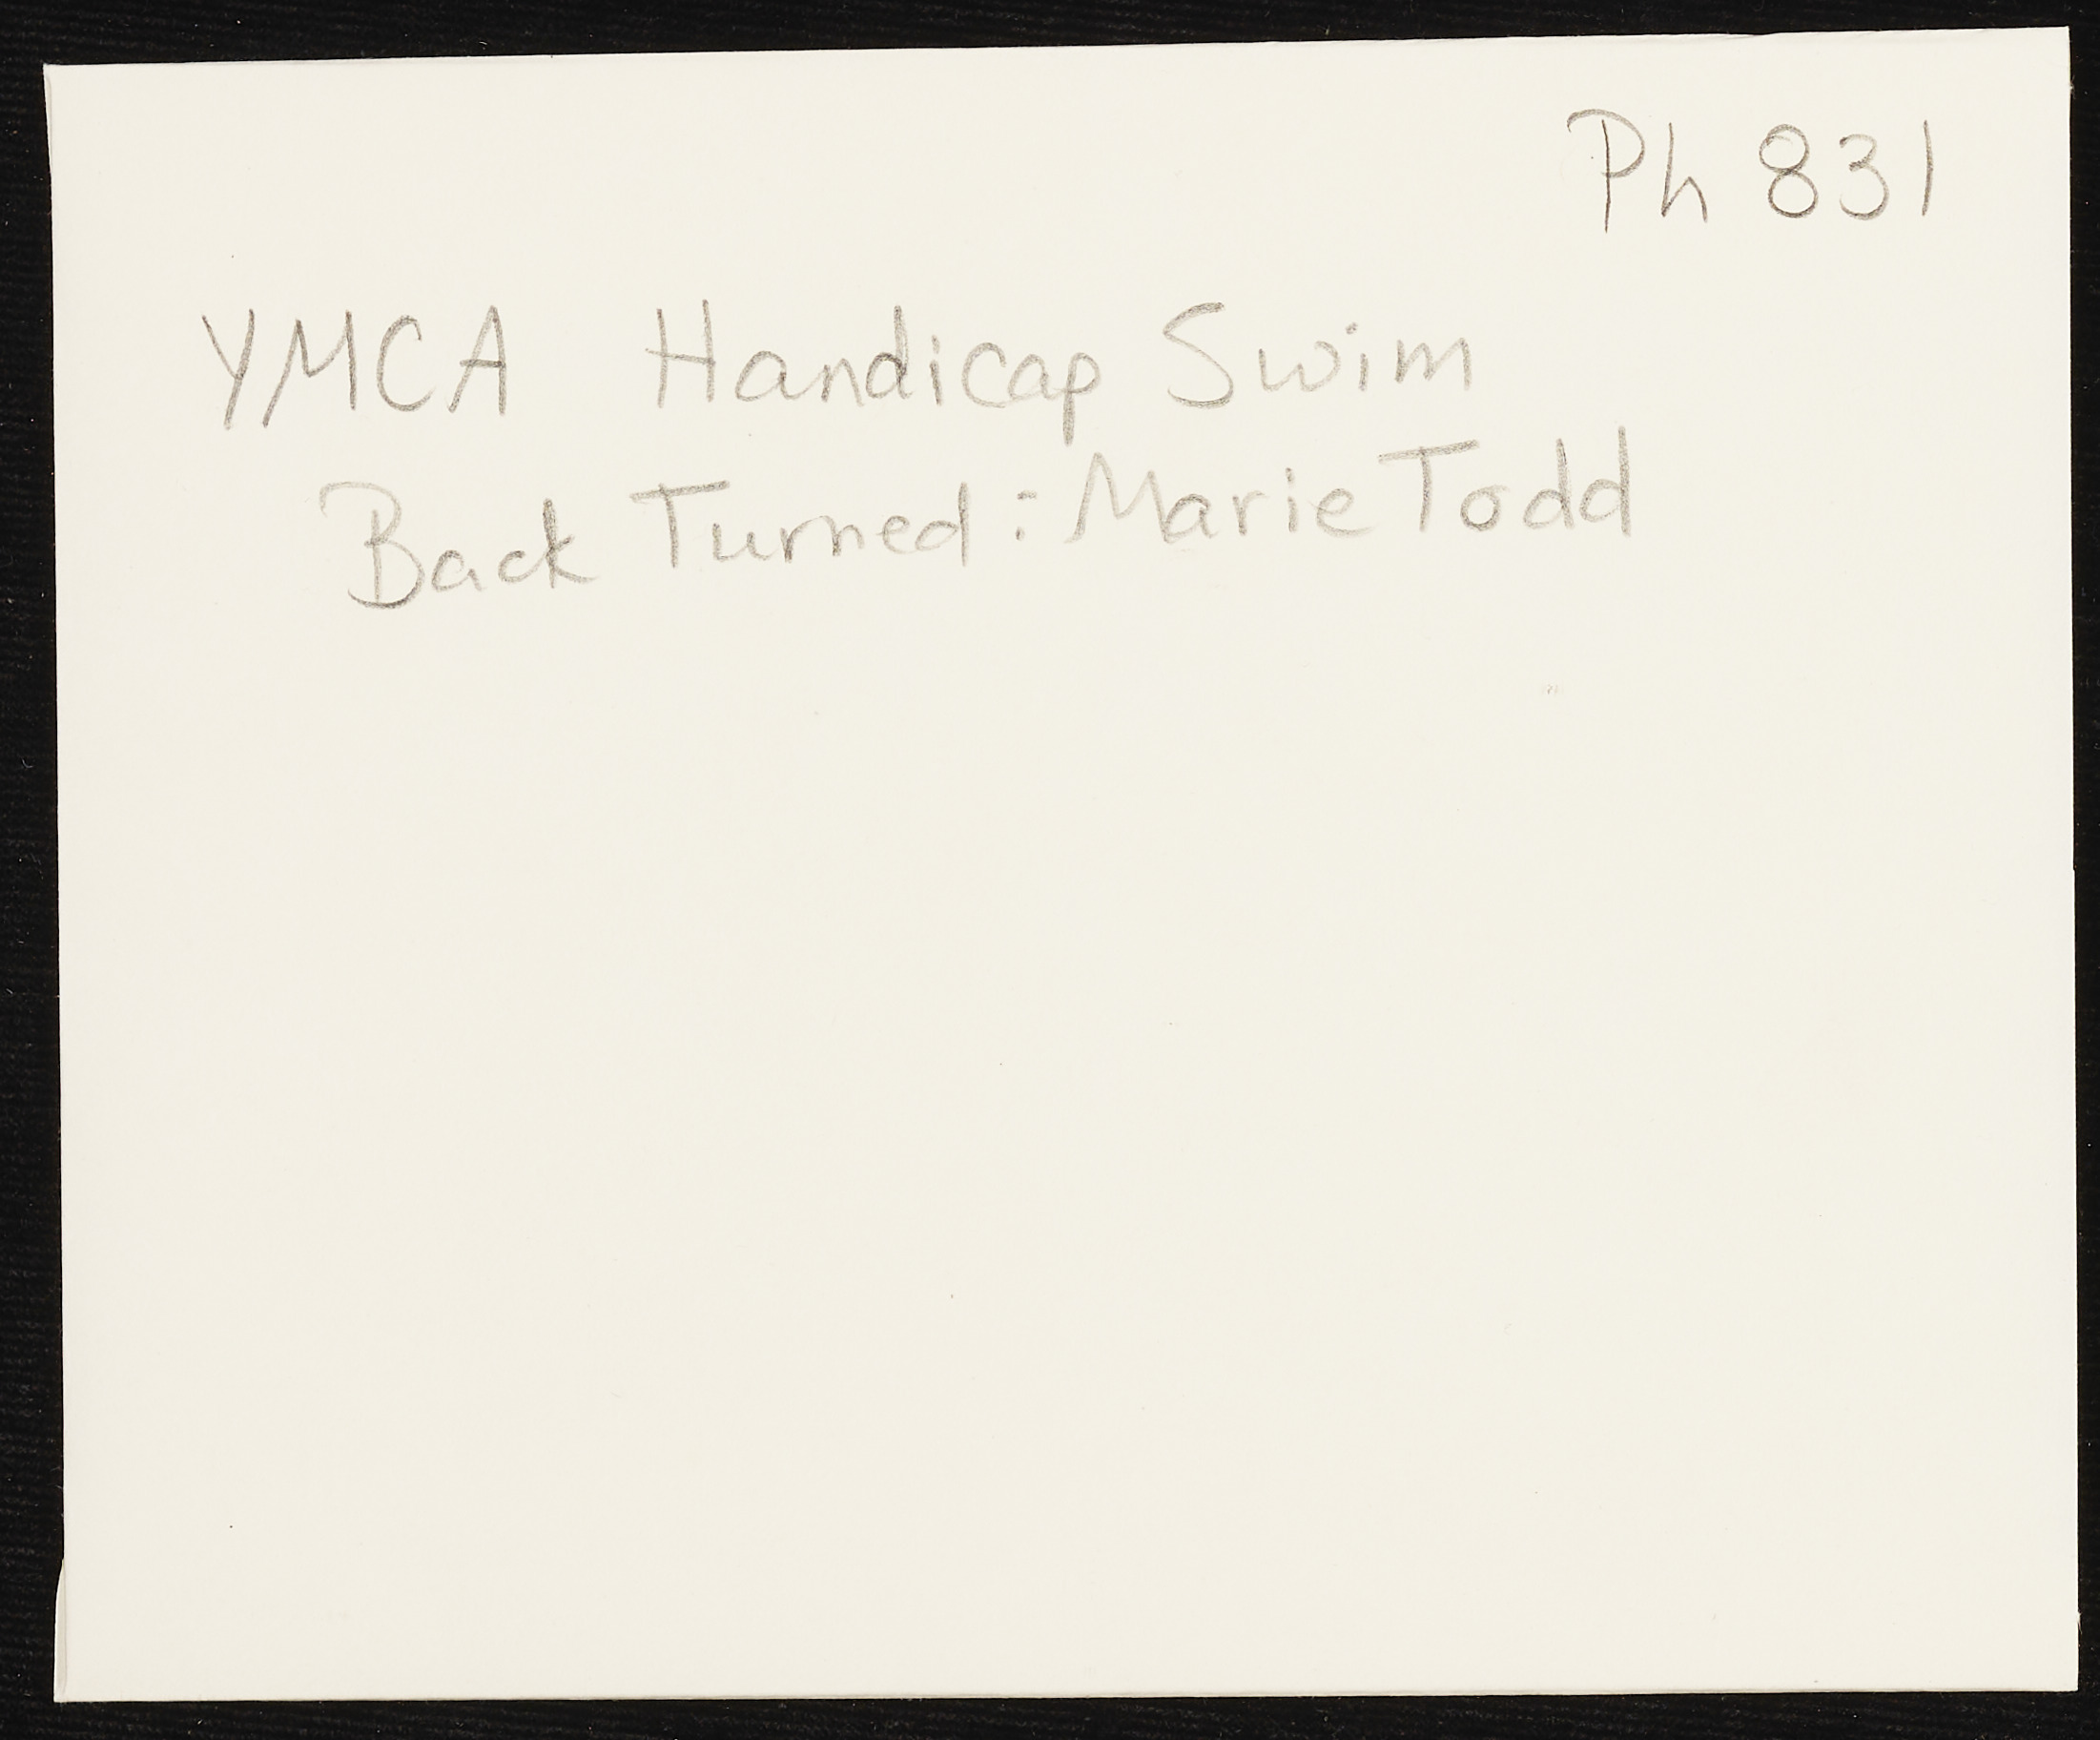 Ph 831
YMCA Handicap Swim
Back Turned: Marie Todd